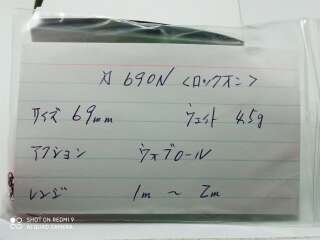 刃 690N <ロックオン>
サイズ 69mm ウェイト 4.5g
アクション ウォブロール
レンジ 1m ~ 2m
SHOT ON REDMI 9
AI QUAD CAMERA